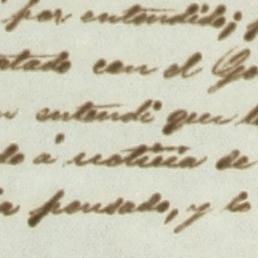 por entendido; p
tado con el Go
entendi que l
do á noticia de
a pensado, y lo